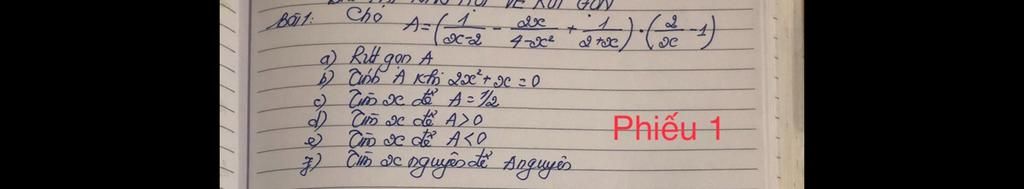 Bài 1: Cho A = (1/(x-2) - 2x/(4-x²) + 1/(2+x)) · (2/x - 1)
a) Rút gọn A
b) Tính A khi 2x² + x = 0
c) Tìm x để A = 1/2
d) Tìm x để A > 0
e) Tìm x để A < 0
f) Tìm x nguyên để A nguyên
Phiếu 1